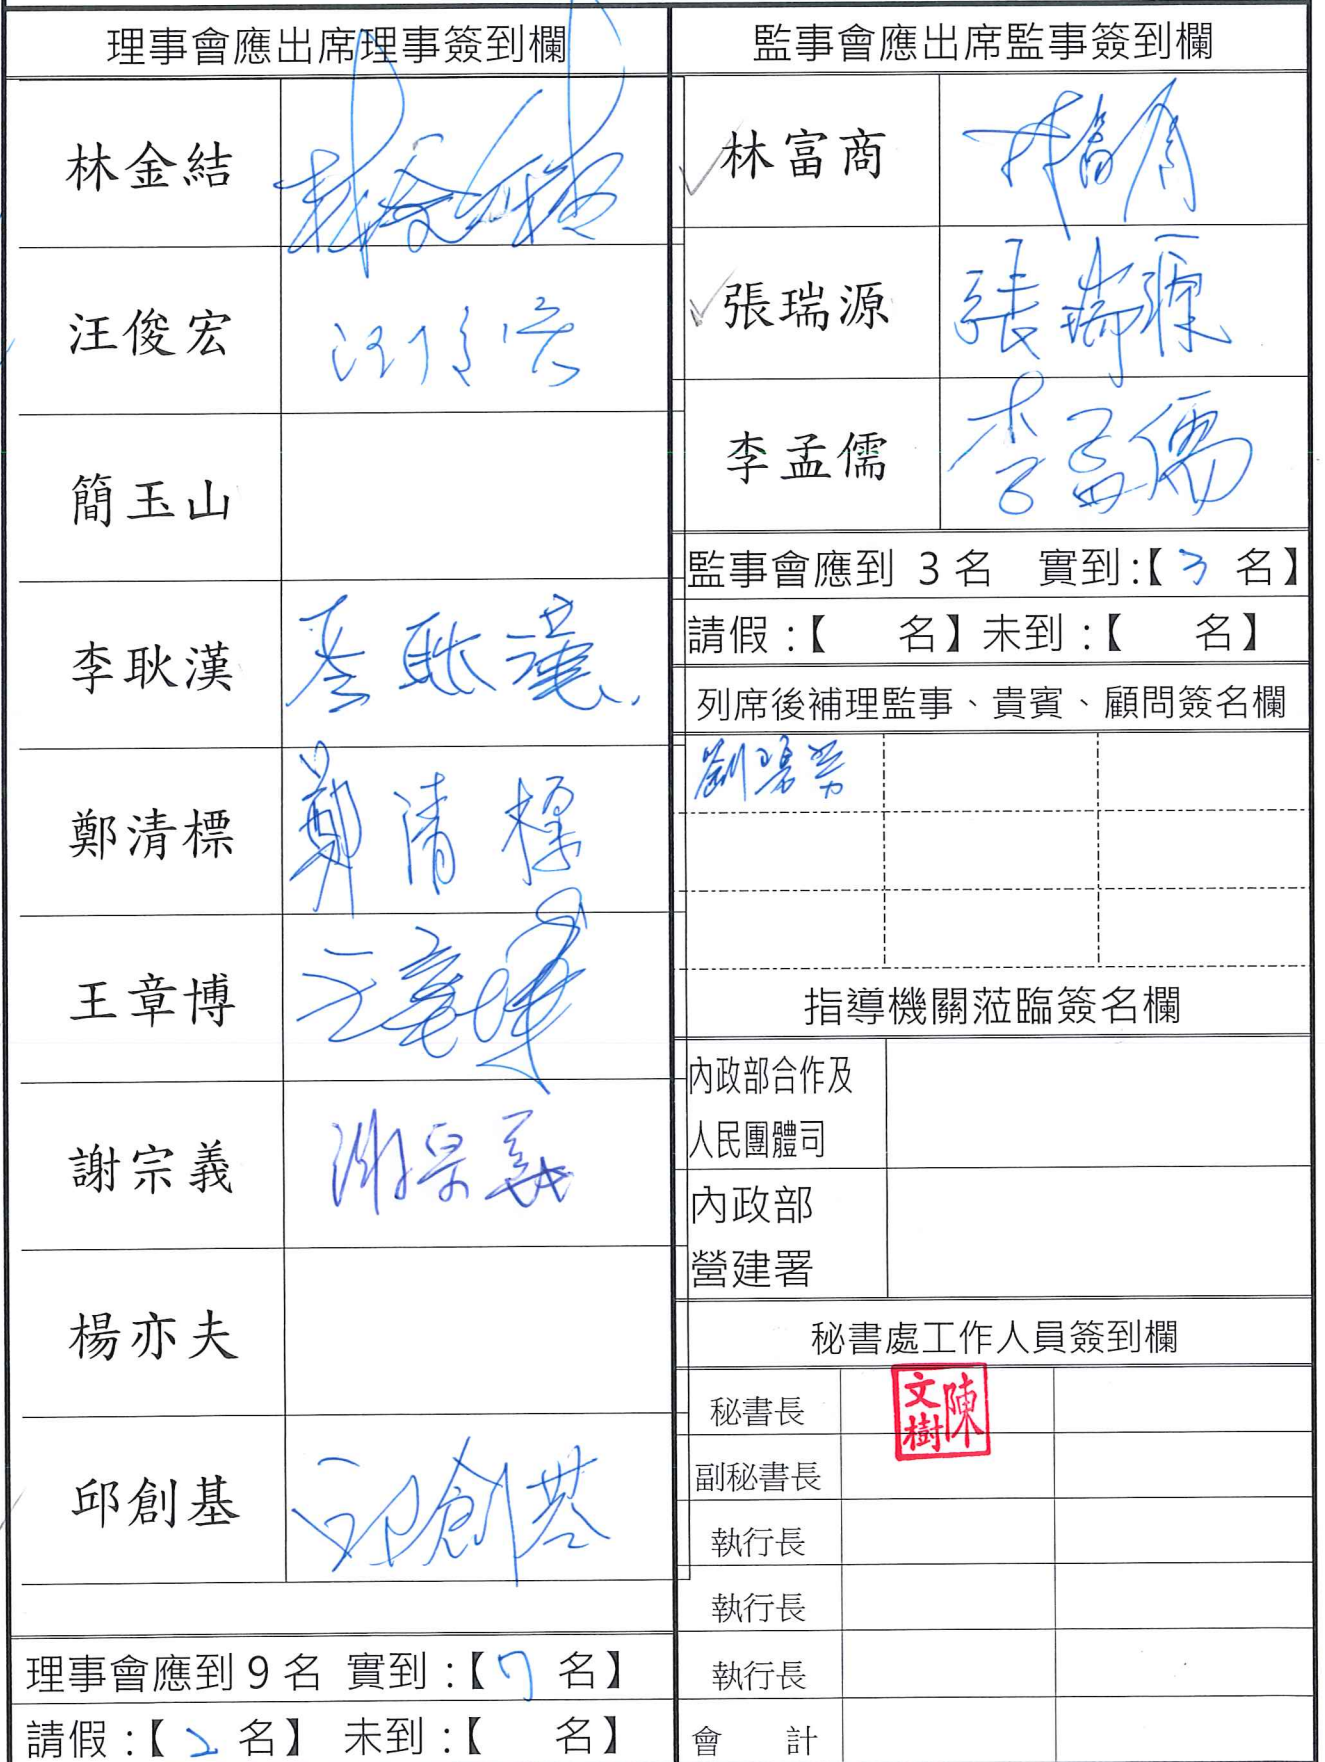 理事會應出席理事簽到欄
林金結 林金結
汪俊宏 汪俊宏
簡玉山
李耿漢 李耿漢
鄭清標 鄭清標
王章博 王章博
謝宗義 謝宗義
楊亦夫
邱創基 邱創基
理事會應到 9 名 實到:【7 名】
請假:【2 名】 未到:【 名】
監事會應出席監事簽到欄
林富商 林富商
張瑞源 張瑞源
李孟儒 李孟儒
監事會應到 3 名 實到:【3 名】
請假:【 名】未到:【 名】
列席後補理監事、貴賓、顧問簽名欄
指導機關蒞臨簽名欄
內政部合作及
人民團體司
內政部
營建署
秘書處工作人員簽到欄
秘書長 陳文樹
副秘書長
執行長
執行長
執行長
會 計